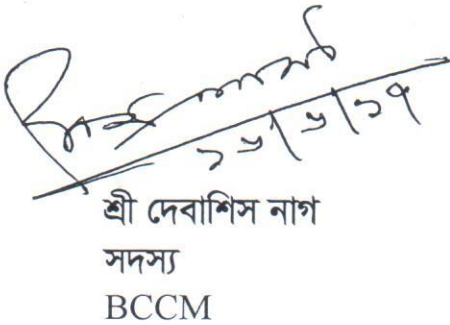 ১৬/৬/১৭
শ্রী দেবাশিস নাগ
সদস্য
BCCM